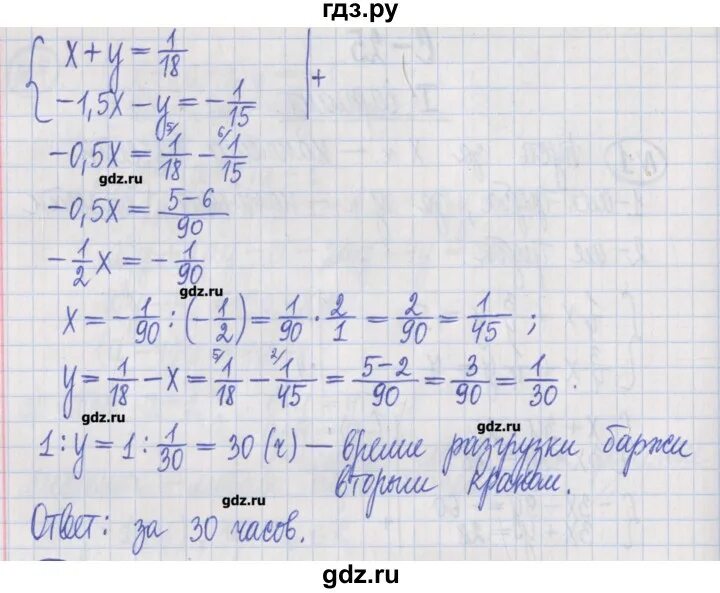 гдз.ру
{ x + y = 1/18
−1,5x − y = −1/15 | +
−0,5x = 1/18 ⁵⁄ − 1/15 ⁶⁄
gdz.ru
−0,5x = (5−6)/90
−1/2 x = −1/90
gdz.ru
x = −1/90 : (−1/2) = 1/90 · 2/1 = 2/90 = 1/45 ;
y = 1/18 − x = ⁵⁄ 1/18 − ²⁄ 1/45 = (5−2)/90 = 3/90 = 1/30 .
gdz.ru
gdz.ru
1 : y = 1 : 1/30 = 30 (ч) — время разгрузки баржи
вторым краном.
gdz.ru
Ответ: за 30 часов.
gdz.ru